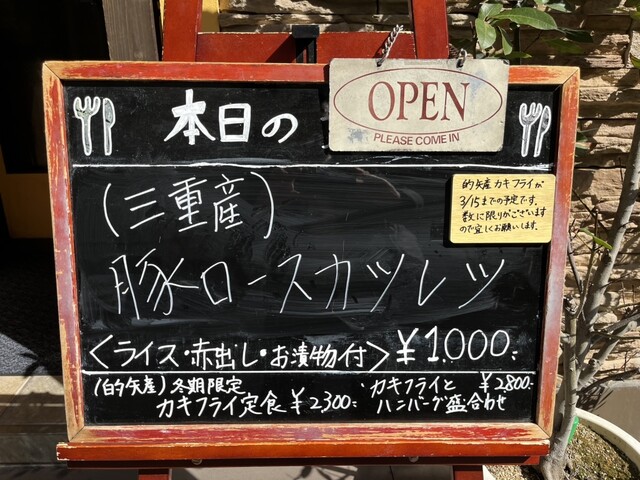 本日の
OPEN
PLEASE COME IN
(三重産)
豚ロースカツレツ
<ライス・赤出し・お漬物付> ¥1.000:
的矢産カキフライが
3/15までの予定です。
数に限りがございます
ので宜しくお願いします。
(的矢産)冬期限定
カキフライ定食 ¥2300:
カキフライと ¥2800:
ハンバーグ盛合わせ